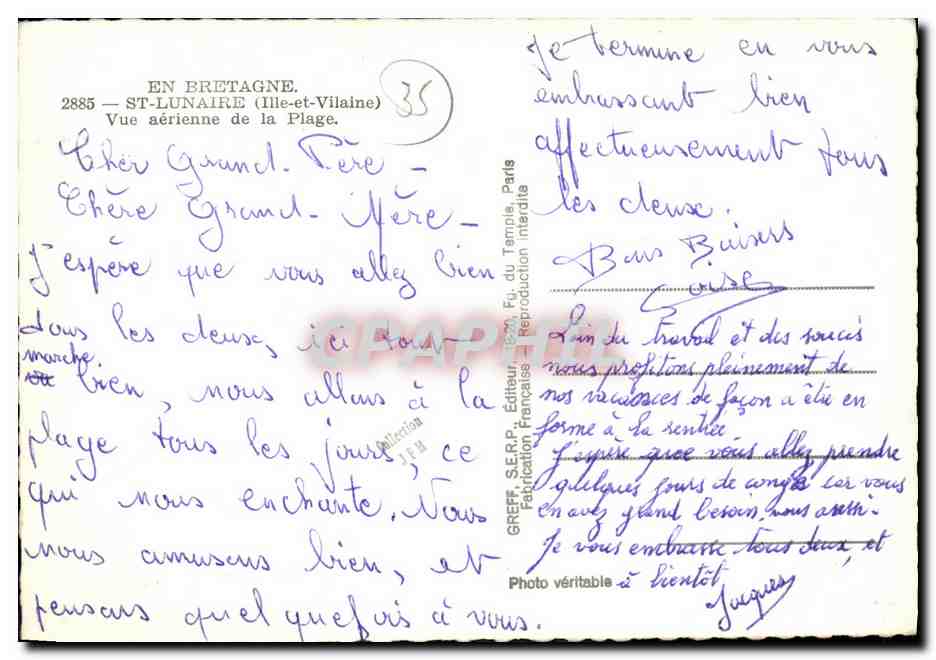 EN BRETAGNE.
2885 — ST-LUNAIRE (Ille-et-Vilaine)
Vue aérienne de la Plage.
35
Cher Grand-Père –
Chère Grand-Mère –
J'espère que vous allez bien
tous les deux, ici tout
marche
bien, nous allons à la
plage tous les jours, ce
qui nous enchante. Nous
nous amusons bien, et
pensons quelquefois à vous.
Je termine en vous
embrassant bien
affectueusement tous
les deux.
Bons Baisers
Loin du travail et des soucis
nous profitons pleinement de
nos vacances de façon a être en
forme à la rentrée
J'espère que vous allez prendre
quelques jours de congés car vous
en avez grand besoin, vous aussi.
Je vous embrasse tous deux, et
à bientôt
Jacques
GREFF, S.E.R.P., Éditeur, 1820, Fg. du Temple, Paris
Fabrication Française - Reproduction interdite
Photo véritable
Collection
J F H
CPAPHIL